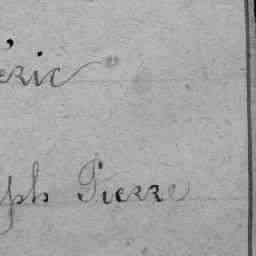 éric
ph Pierre